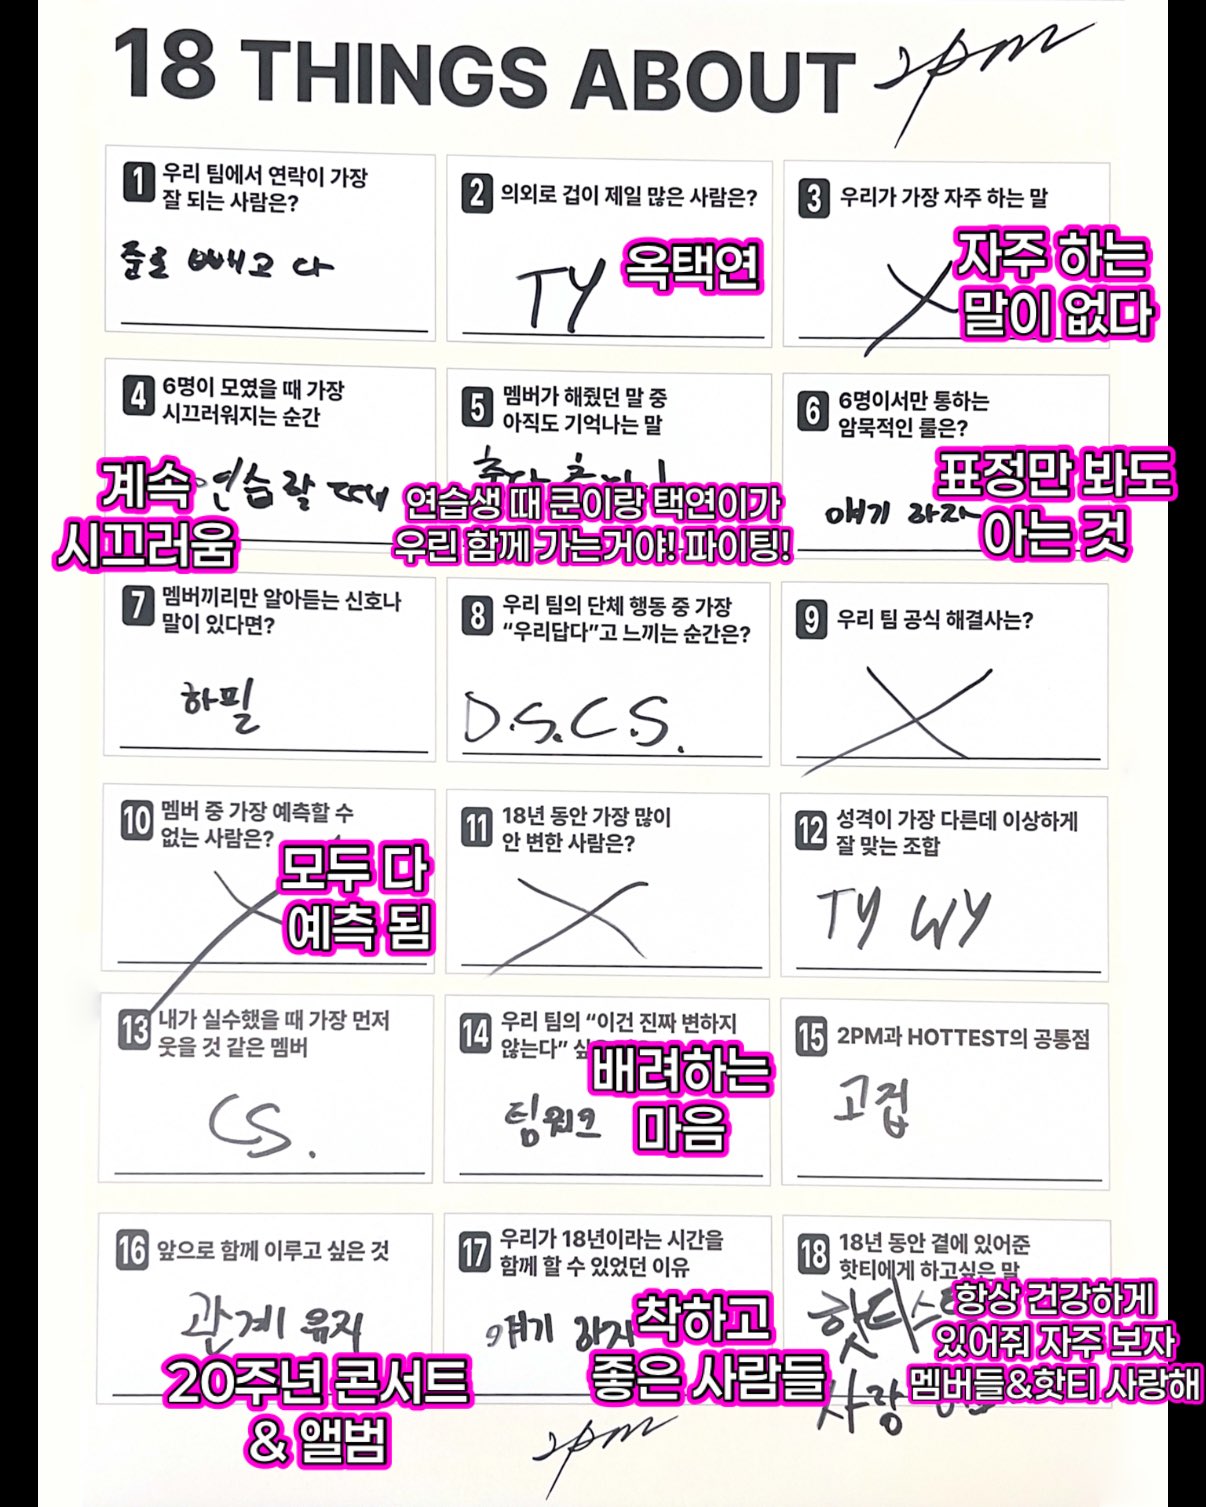 18 THINGS ABOUT 2pm
1 우리 팀에서 연락이 가장
잘 되는 사람은?
준호 빼고 다
2 의외로 겁이 제일 많은 사람은?
TY
옥택연
3 우리가 가장 자주 하는 말
X
자주 하는
말이 없다
4 6명이 모였을 때 가장
시끄러워지는 순간
연습 할 때
계속
시끄러움
5 멤버가 해줬던 말 중
아직도 기억나는 말
연습생 때 쿤이랑 택연이가
우린 함께 가는거야! 파이팅!
6 6명이서만 통하는
암묵적인 룰은?
얘기 하자
표정만 봐도
아는 것
7 멤버끼리만 알아듣는 신호나
말이 있다면?
하필
8 우리 팀의 단체 행동 중 가장
“우리답다”고 느끼는 순간은?
D.S.C.S.
9 우리 팀 공식 해결사는?
X
10 멤버 중 가장 예측할 수
없는 사람은?
X
모두 다
예측 됨
11 18년 동안 가장 많이
안 변한 사람은?
X
12 성격이 가장 다른데 이상하게
잘 맞는 조합
TY WY
13 내가 실수했을 때 가장 먼저
웃을 것 같은 멤버
CS.
14 우리 팀의 “이건 진짜 변하지
않는다” 싶
팀워크
배려하는
마음
15 2PM과 HOTTEST의 공통점
고집
16 앞으로 함께 이루고 싶은 것
관계 유지
20주년 콘서트
& 앨범
17 우리가 18년이라는 시간을
함께 할 수 있었던 이유
얘기 하자
착하고
좋은 사람들
18 18년 동안 곁에 있어준
핫티에게 하고싶은 말
핫티스트
사랑
항상 건강하게
있어줘 자주 보자
멤버들&핫티 사랑해
2pm